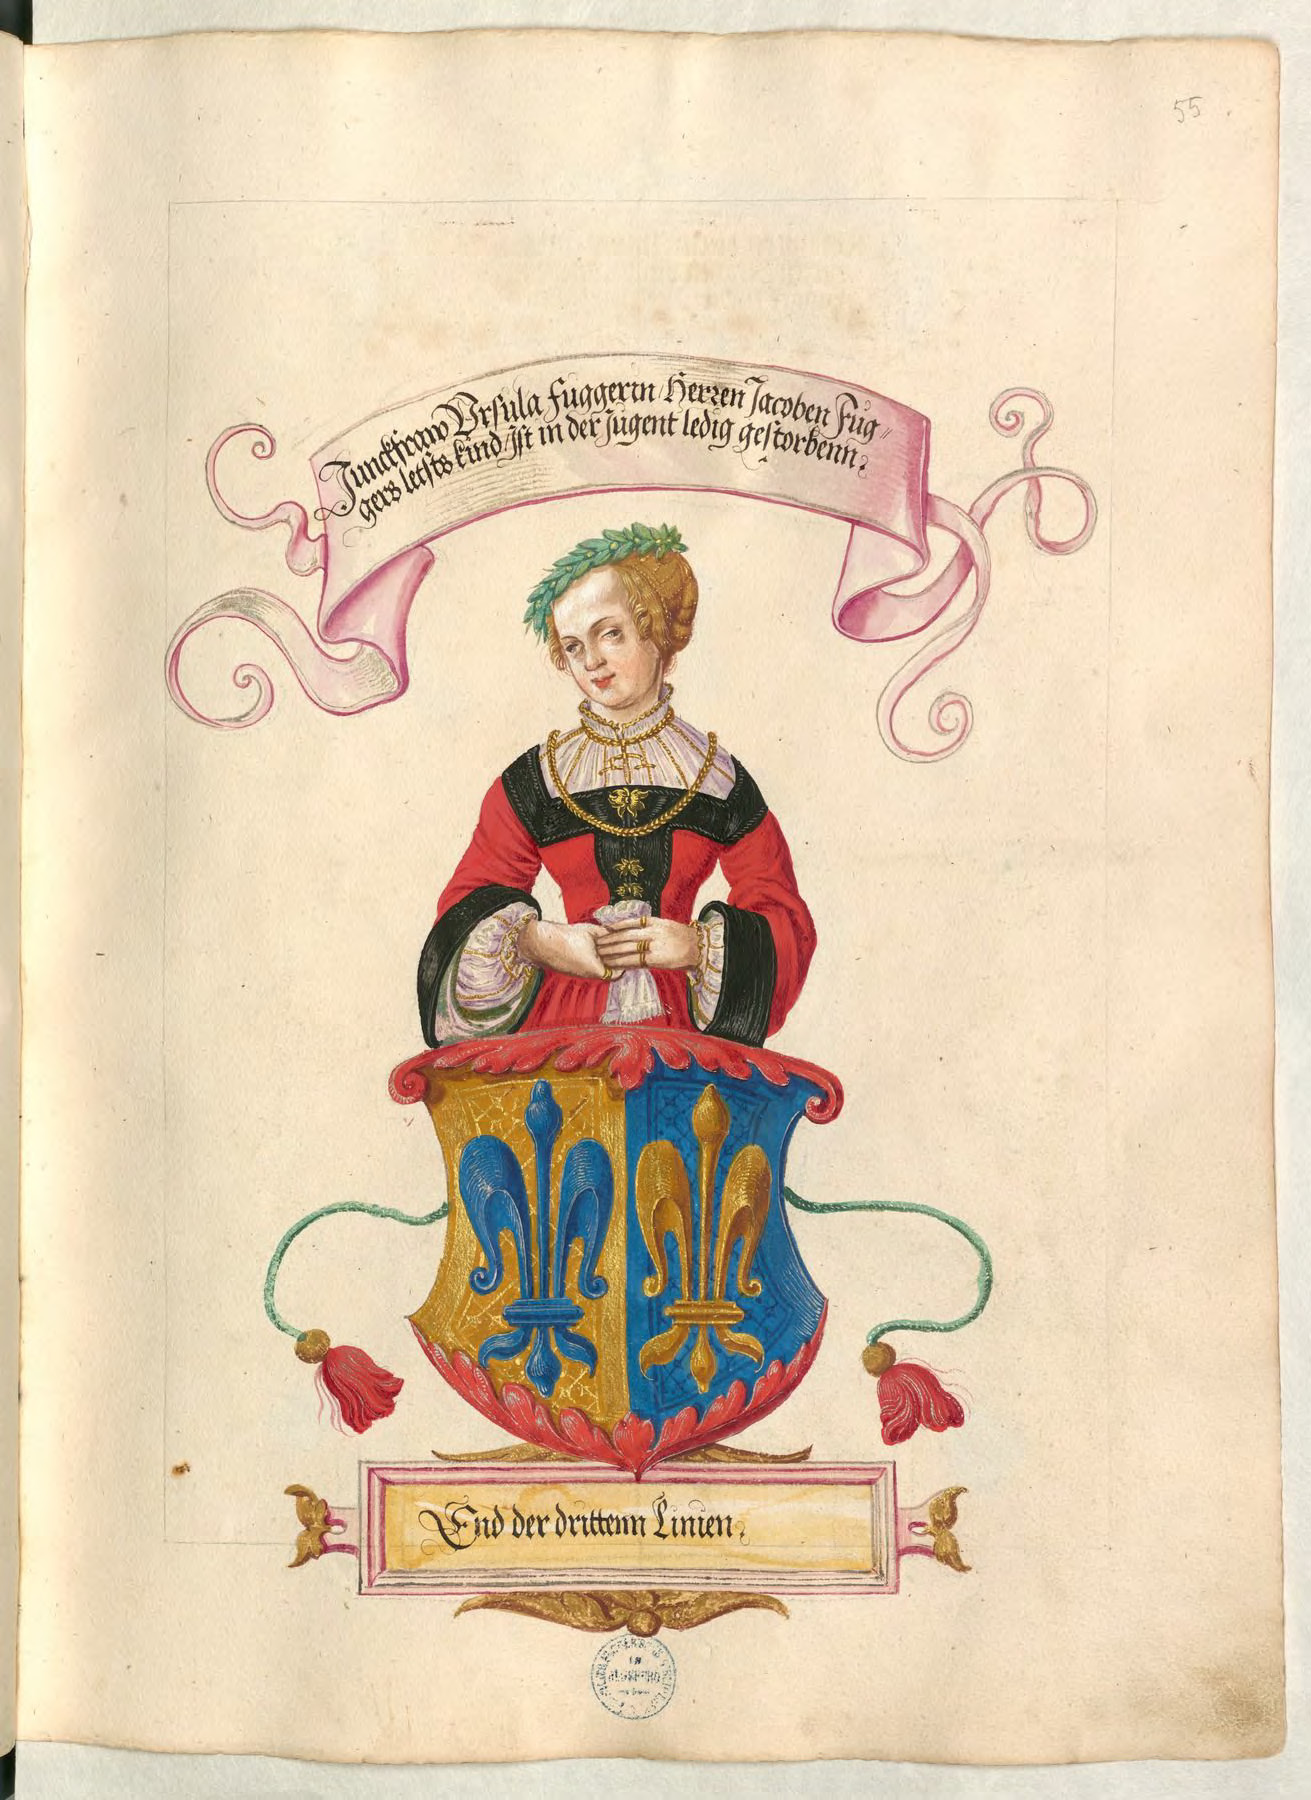 55
Junckfraw Vrsula Fuggerin Herren Jacoben Fug„
gers letsts kind, Ist in der Jugent ledig gestorbenn.
End der drittenn Linien.
IN